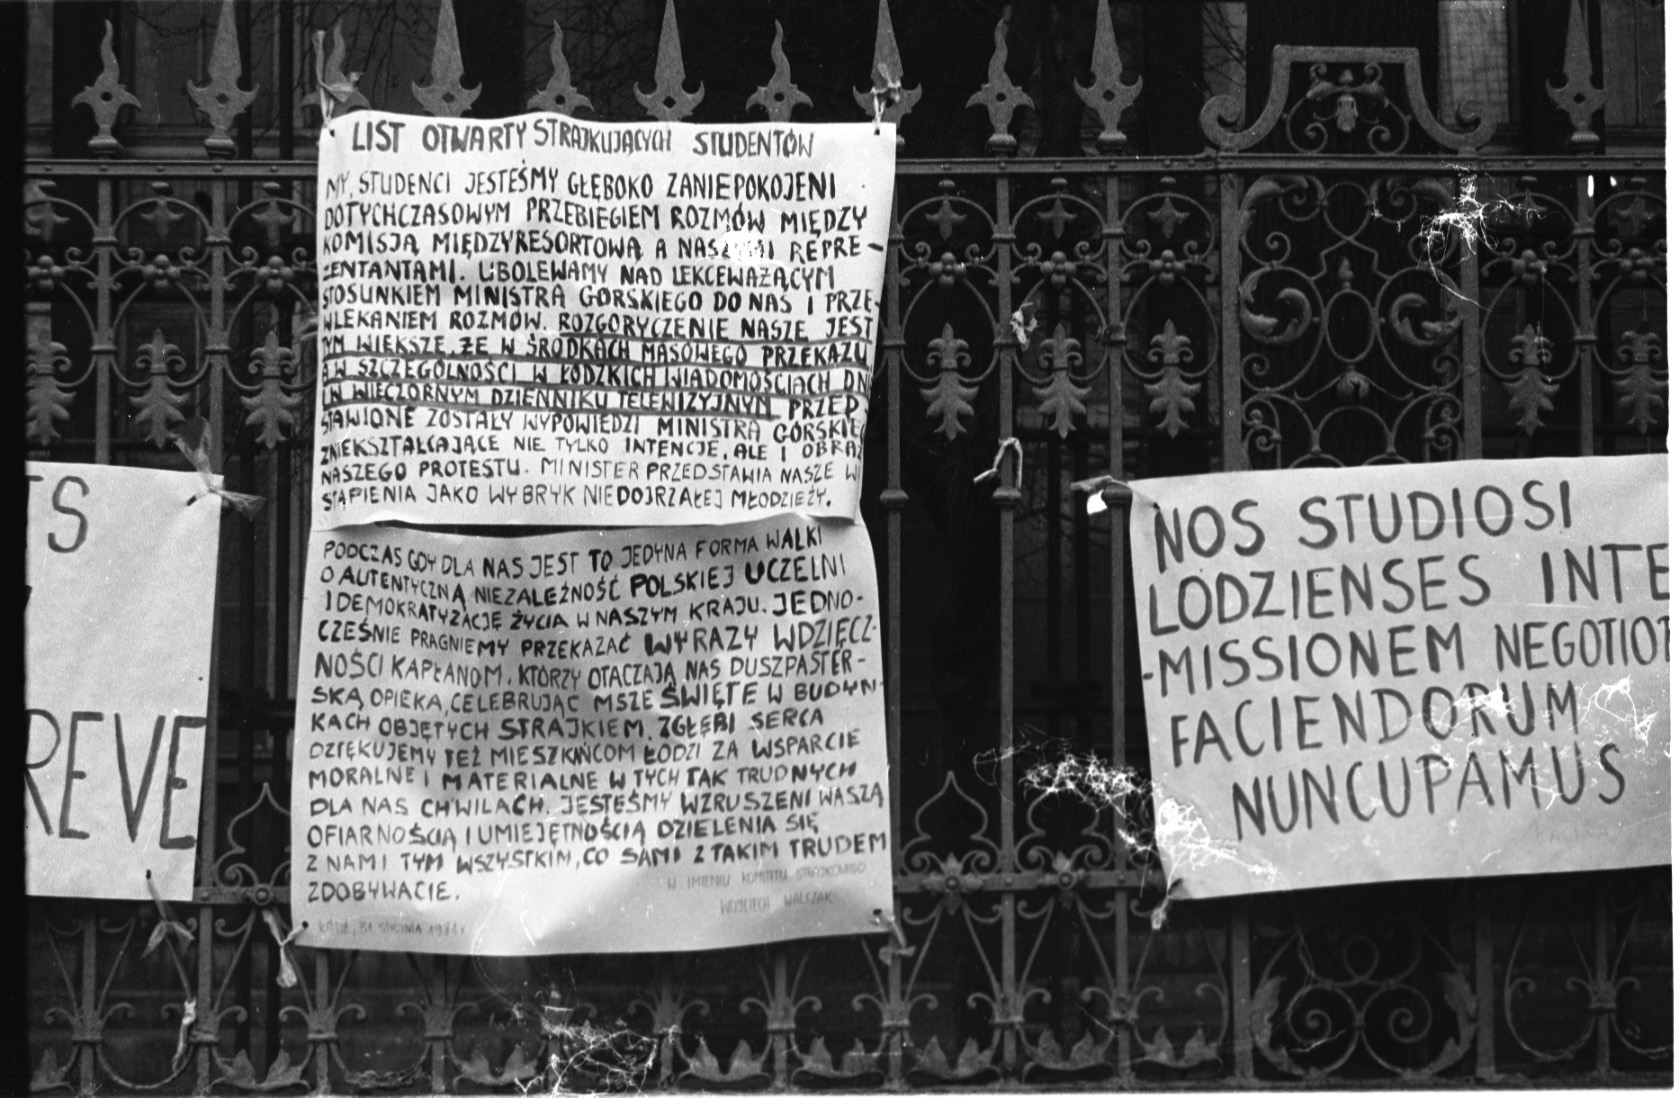 TS
REVE
LIST OTWARTY STRAJKUJĄCYCH STUDENTÓW
MY, STUDENCI JESTEŚMY GŁĘBOKO ZANIEPOKOJENI
DOTYCHCZASOWYM PRZEBIEGIEM ROZMÓW MIĘDZY
KOMISJĄ MIĘDZYRESORTOWĄ A NASZYMI REPRE-
ZENTANTAMI. UBOLEWAMY NAD LEKCEWAŻĄCYM
STOSUNKIEM MINISTRA GÓRSKIEGO DO NAS I PRZE-
WLEKANIEM ROZMÓW. ROZGORYCZENIE NASZE JEST
TYM WIĘKSZE, ŻE W ŚRODKACH MASOWEGO PRZEKAZU
A W SZCZEGÓLNOŚCI W ŁÓDZKICH WIADOMOŚCIACH DNIA
I W WIECZORNYM DZIENNIKU TELEWIZYJNYM PRZED
STAWIONE ZOSTAŁY WYPOWIEDZI MINISTRA GÓRSKIEGO
ZNIEKSZTAŁCAJĄCE NIE TYLKO INTENCJE, ALE I OBRAZ
NASZEGO PROTESTU. MINISTER PRZEDSTAWIA NASZE WY
STĄPIENIA JAKO WYBRYK NIEDOJRZAŁEJ MŁODZIEŻY.
PODCZAS GDY DLA NAS JEST TO JEDYNA FORMA WALKI
O AUTENTYCZNĄ NIEZALEŻNOŚĆ POLSKIEJ UCZELNI
I DEMOKRATYZACJĘ ŻYCIA W NASZYM KRAJU. JEDNO-
CZEŚNIE PRAGNIEMY PRZEKAZAĆ WYRAZY WDZIĘCZ-
NOŚCI KAPŁANOM, KTÓRZY OTACZAJĄ NAS DUSZPASTER-
SKĄ OPIEKĄ, CELEBRUJĄC MSZE ŚWIĘTE W BUDYN-
KACH OBJĘTYCH STRAJKIEM. ZGŁĘBI SERCA
DZIĘKUJEMY TEŻ MIESZKAŃCOM ŁODZI ZA WSPARCIE
MORALNE I MATERIALNE W TYCH TAK TRUDNYCH
DLA NAS CHWILACH. JESTEŚMY WZRUSZENI WASZĄ
OFIARNOŚCIĄ I UMIEJĘTNOŚCIĄ DZIELENIA SIĘ
Z NAMI TYM WSZYSTKIM, CO SAMI Z TAKIM TRUDEM
ZDOBYWACIE.
W IMIENIU KOMITETU STRAJKOWEGO
WOJCIECH WALCZAK
ŁÓDŹ, 31 STYCZNIA 1981 r.
NOS STUDIOSI
LODZIENSES INTE
-MISSIONEM NEGOTIOT
FACIENDORUM
NUNCUPAMUS